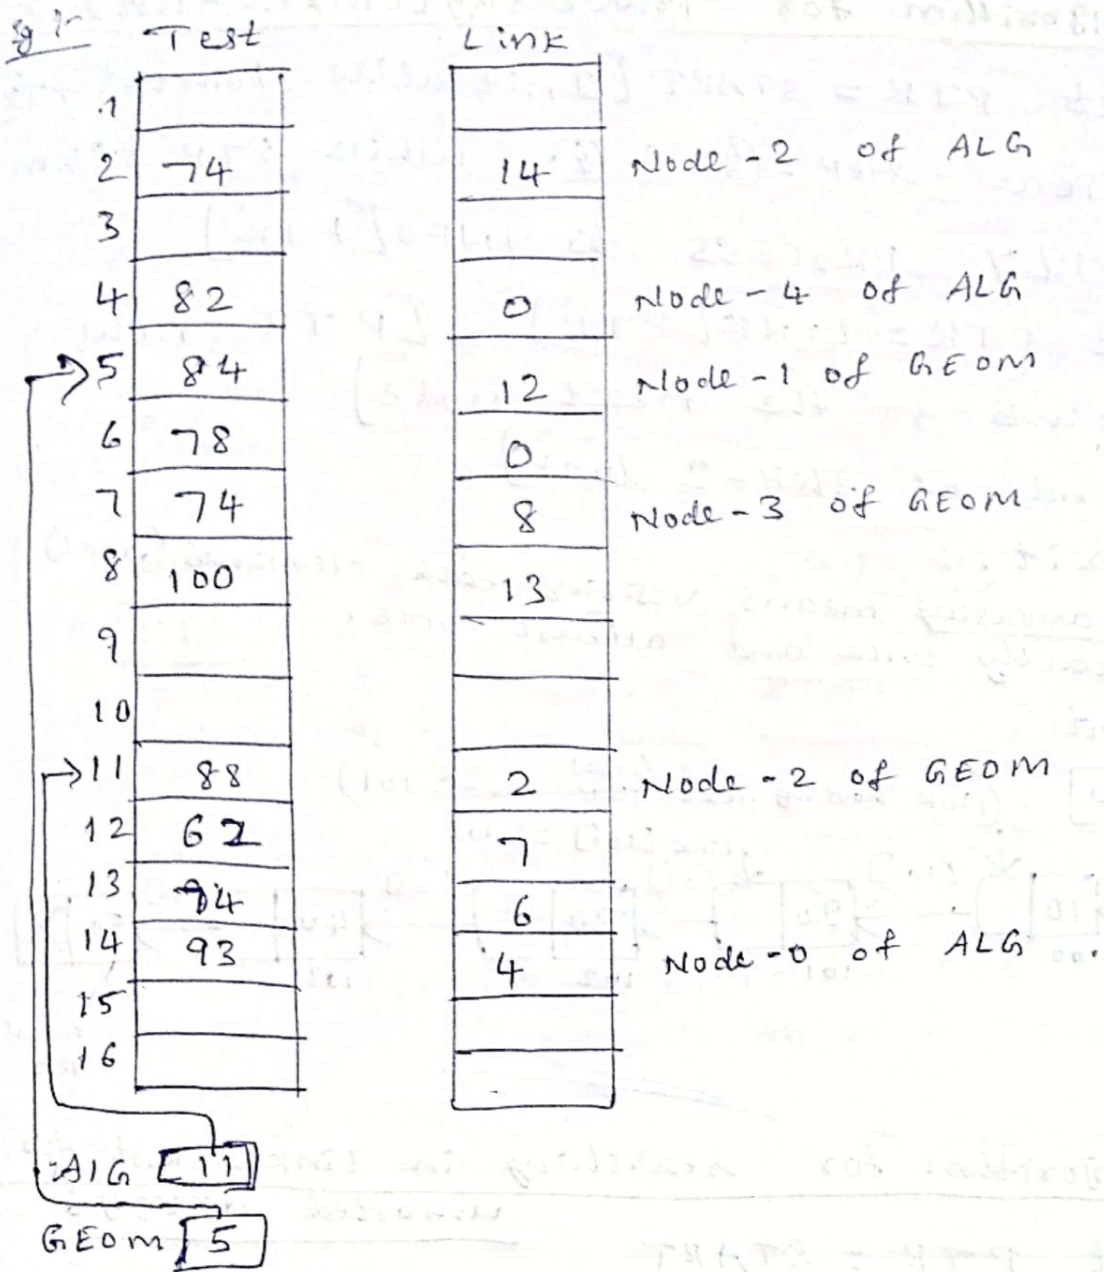 Eg :-
Test Link
1
2 74 14 Node-2 of ALG
3
4 82 0 Node-4 of ALG
5 84 12 Node-1 of GEOM
6 78 0
7 74 8 Node-3 of GEOM
8 100 13
9
10
11 88 2 Node-2 of GEOM
12 62 7
13 94 6
14 93 4 Node-0 of ALG
15
16
ALG 11
GEOM 5